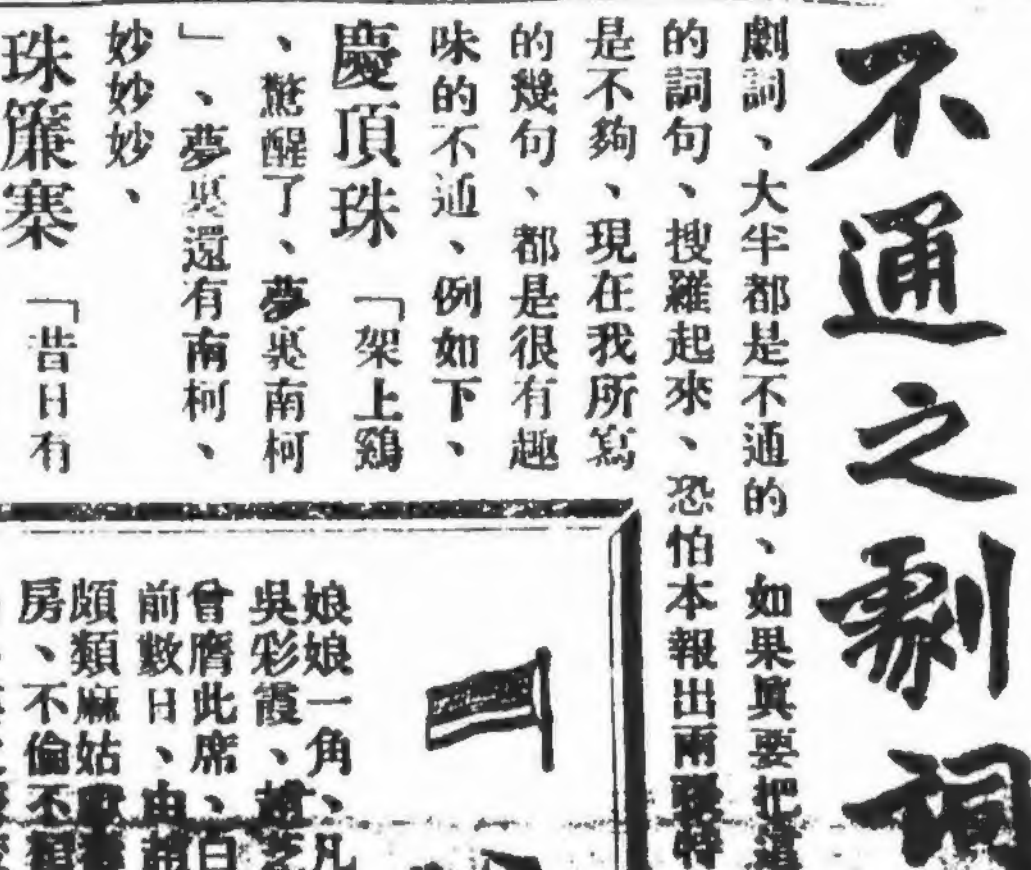 不通之劇詞
劇詞、大半都是不通的、如果真要把這
的詞句、搜羅起來、恐怕本報出兩張特
是不夠、現在我所寫
的幾句、都是很有趣
味的不通、例如下、
慶頂珠　「架上鷄
、驚醒了、夢裏南柯
」、夢裏還有南柯、
妙妙妙、
珠簾寨　「昔日有
娘娘一角、凡
吳彩霞、趙芝
曾膺此席、白
前數日、由趙
頗類麻姑
房、不倫不類